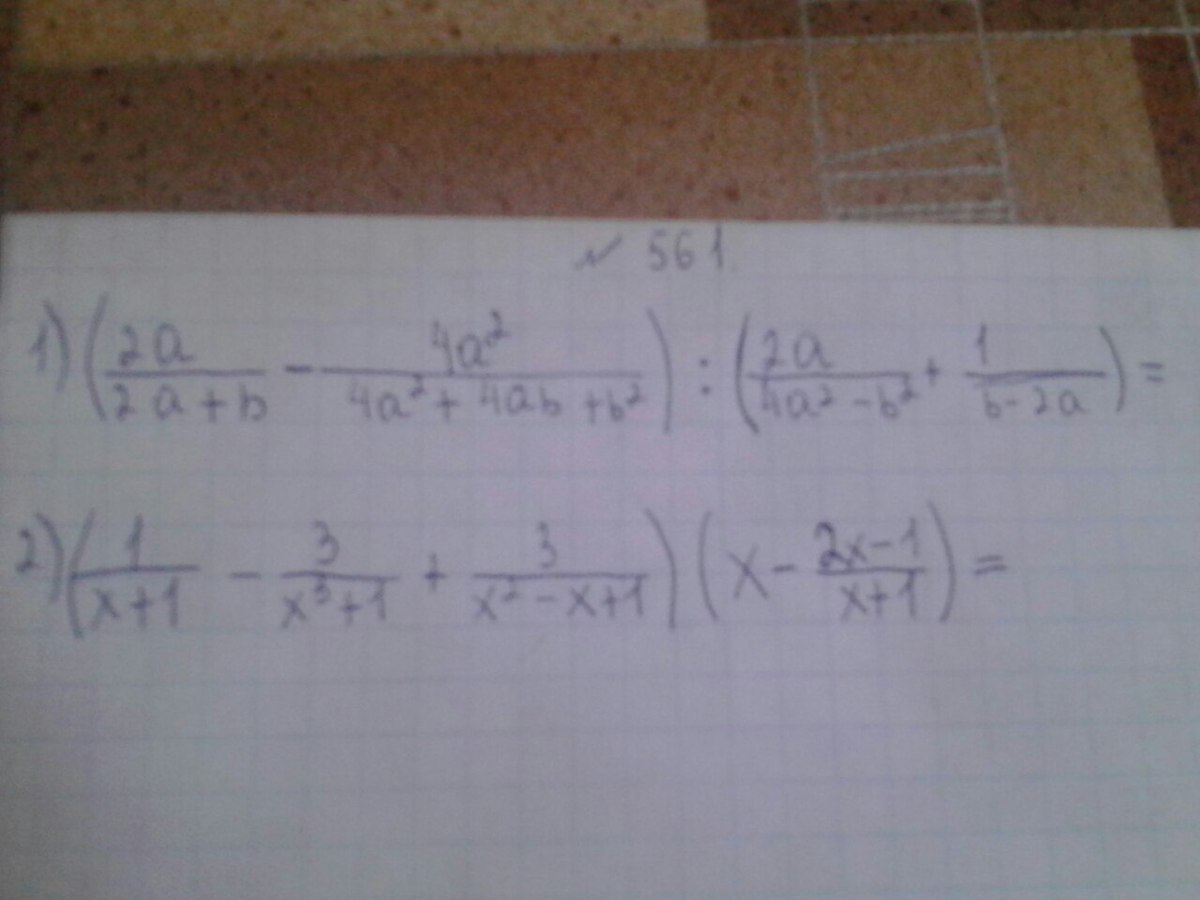 № 561.
1) (2a/(2a+b) - 4a²/(4a²+4ab+b²)) : (2a/(4a²-b²) + 1/(b-2a)) =
2) (1/(x+1) - 3/(x³+1) + 3/(x²-x+1)) (x - (2x-1)/(x+1)) =